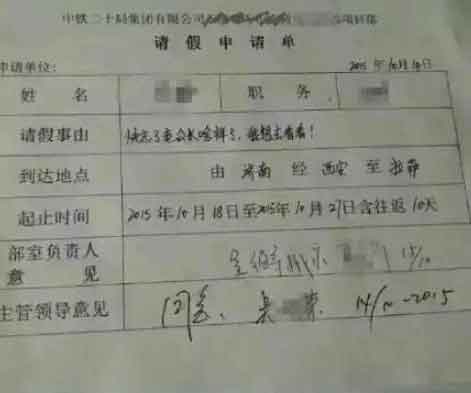 中铁二十局集团有限公司
请假申请单
申请单位: 2015年10月14日
姓名 职务
请假事由 快忘了老公长啥样了，我想去看看！
到达地点 由济南经西安至拉萨
起止时间 2015年10月18日至2015年10月27日含往返10天
部室负责人意见
主管领导意见 同意、 14/10-2015